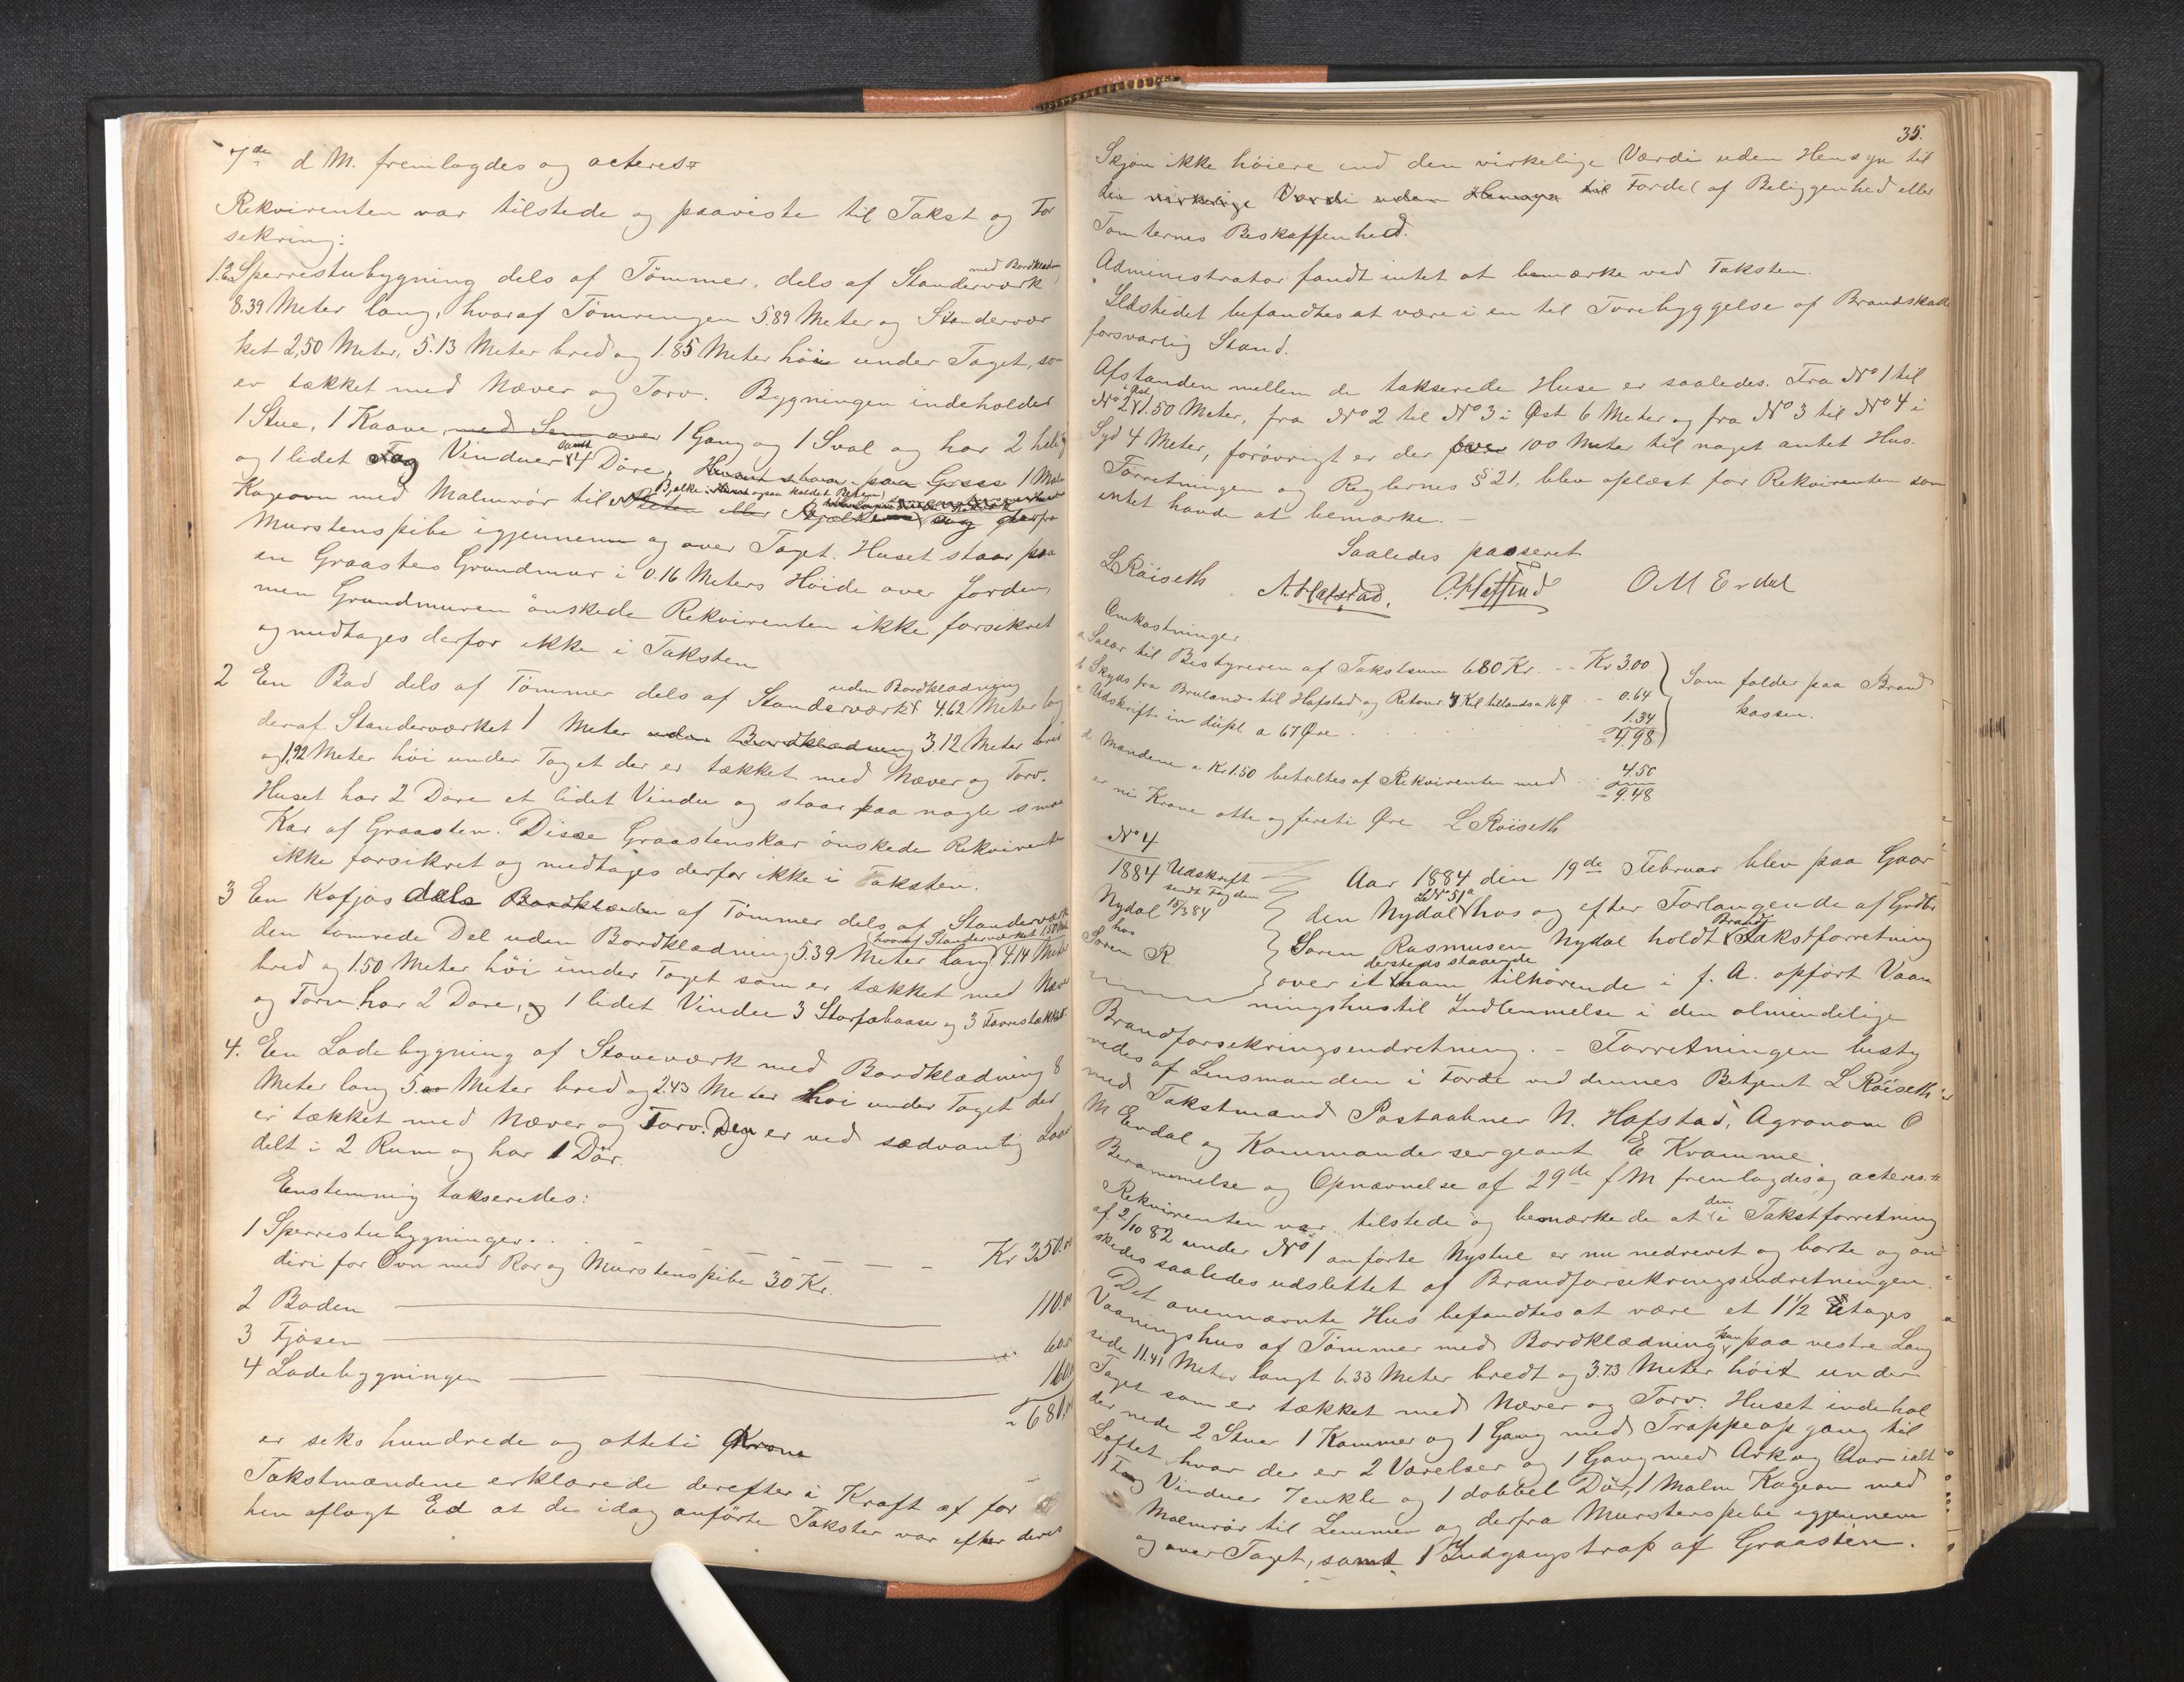 7de d M. fremlagdes og acteres
Rekvirenten var tilstede og paaviste til Takst og For
sikring:
1. En Sperrestubygning dels af Tømmer, dels af Standerværk med Bordklædn
8.39 Meter lang, hvoraf Tømringen 5.89 Meter og Standervær
ket 2,50 Meter, 5.13 Meter bred og 1.85 Meter høi under Taget, som
er tækket med Næver og Torv. Bygningen indeholder
1 Stue, 1 Kaave med Lem over 1 Gang og 1 Sval og har 2 hele
og 1 lidet Fag Vinduer samt 4 Døre, Huset staar paa 1 Malm
Kageovn med Malmrør til Bjælke
Murstenspibe igjennem og over Taget. Huset staar paa
en Graastens Grundmur i 0.16 Meters Høide over Jorden,
men Grundmuren ønskede Rekvirenten ikke forsikret
og medtages derfor ikke i Taksten
2 En Bod dels af Tømmer dels af Standerværk uden Bordklædning 4.62 Meter lang
deraf Standerværket 1 Meter uden Bordklædning 3.12 Meter bred
og 1,92 Meter høi under Taget der er tækket med Næver og Torv.
Huset har 2 Døre et lidet Vindu og staar paa nogle smaa
Kar af Graasten. Disse Graastenskar ønskede Rekvirenten
ikke forsikret og medtages derfor ikke i Taksten.
3 En Kofjøs dels Bordklæden af Tømmer dels af Standerværk
den tømrede Del uden Bordklædning 5.39 Meter lang hvoraf Standerværket 1.50 4.14 Meter
bred og 1.50 Meter høi under Taget som er tækket med Næver
og Torv har 2 Døre, og 1 lidet Vindu 3 Storfæbaaser og 3
4. En Ladebygning af Staveværk med Bordklædning 8
Meter lang 5.00 Meter bred og 2.43 Meter høi under Taget der
er tækket med Næver og Torv. Den er ved sædvanlig Laav
delt i 2 Rum og har 1 Dør.
Enstemmig takseredes:
1 Sperrestubygningen . . — — — — — Kr 350.00
deri for Ovn med Rør og Murstenspibe 30 Kr.
2 Boden — 110.00
3 Fjøsen — 60.00
4 Ladebygningen — 160.00
" 680.00
er seks hundrede og otteti Krone
Takstmændene erklærede derefter i Kraft af før
hen aflagt Ed at de idag anførte Takster var efter deres
35.
Skjøn ikke høiere end den virkelige Værdi uden Hensyn til
den virkelige Værdi uden Hensyn til Fordel af Beliggenhed eller
Tomternes Beskaffenhed.
Administrator fandt intet at bemærke ved Taksten.
Ildstedet befandtes at være i en til Forebyggelse af Brandskade
forsvarlig Stand.
Afstanden mellem de takserede Huse er saaledes. Fra No 1 til
No 2 i Øst 1.50 Meter, fra No 2 til No 3 i Øst 6 Meter og fra No 3 til No 4 i
Syd 4 Meter, forøvrigt er der over 100 Meter til noget antet Hus.
Forretningen og Reglernes § 21, blev oplæst for Rekvirenten som
intet havde at bemærke. –
Saaledes passeret
L Røiseth N. Hafstad. O M Erdal
Omkostninger
a Salær til Bestyreren af Takstsum 680 Kr. -- Kr 3.00
b Skyds fra Bruland til Hafstad og Retour. 4 Kil tillands a 16 Ø - 0.64
c Udskrift in dupl a 67 Øre . . . . 1.34
" 4.98
Som falder paa Brand
kassen.
d. Mændene a Kr 1.50 betaltes af Rekvirenten med 4.50
" 9.48
er ni Krone otte og førti Øre L Røiseth
No 4
1884 Udskrift
sendt Fogden
15/3 84
Nydal
hos
Søren R.
Aar 1884 den 19de Februar blev paa Gaar
den Nydal LNo 51a hos og efter Forlangende af Grdbr
Søren Rasmusen Nydal holdt Brandtakstforretning
over et dersteds staaende ham tilhørende i f. A. opført Vaan
ningshus til Indlemmelse i den almindelige
Brandforsikringsindretning. – Forretningen besty
redes af Lensmanden i Førde ved dennes Betjent L Røiseth
med Takstmænd Postaabner N. Hafstad, Agronom O
M Erdal og Kommandersergeant E Kvamme.
Berammelse og Opnævnelse af 29de f M fremlagdes og acteres.
Rekvirenten var tilstede og bemærkede at den i Takstforretning
af 2/10 82 under No 1 anførte Nystue er nu nedrevet og borte og øn
skedes saaledes udslettet af Brandforsikringsindretningen.
Det ovennævnte Hus befandtes at være et 1½ Etages
Vaaningshus af Tømmer med Bordklædning kun paa vestre Lang
side 11.41 Meter langt 6.33 Meter bredt og 3.73 Meter høit under
Taget som er tækket med Næver og Torv. Huset indehol
der nede 2 Stuer 1 Kammer og 1 Gang med Trappeopgang til
Loftet hvor der er 2 Værelser og 1 Gang med Ark og har ialt
11 Fag Vinduer 7 enkle og 1 dobbel Dør, 1 Malm Kageovn med
Malmrør til Lemmen og derfra Murstenspibe igjennem
og over Taget, samt 1 Indgangstrap af Graasten.